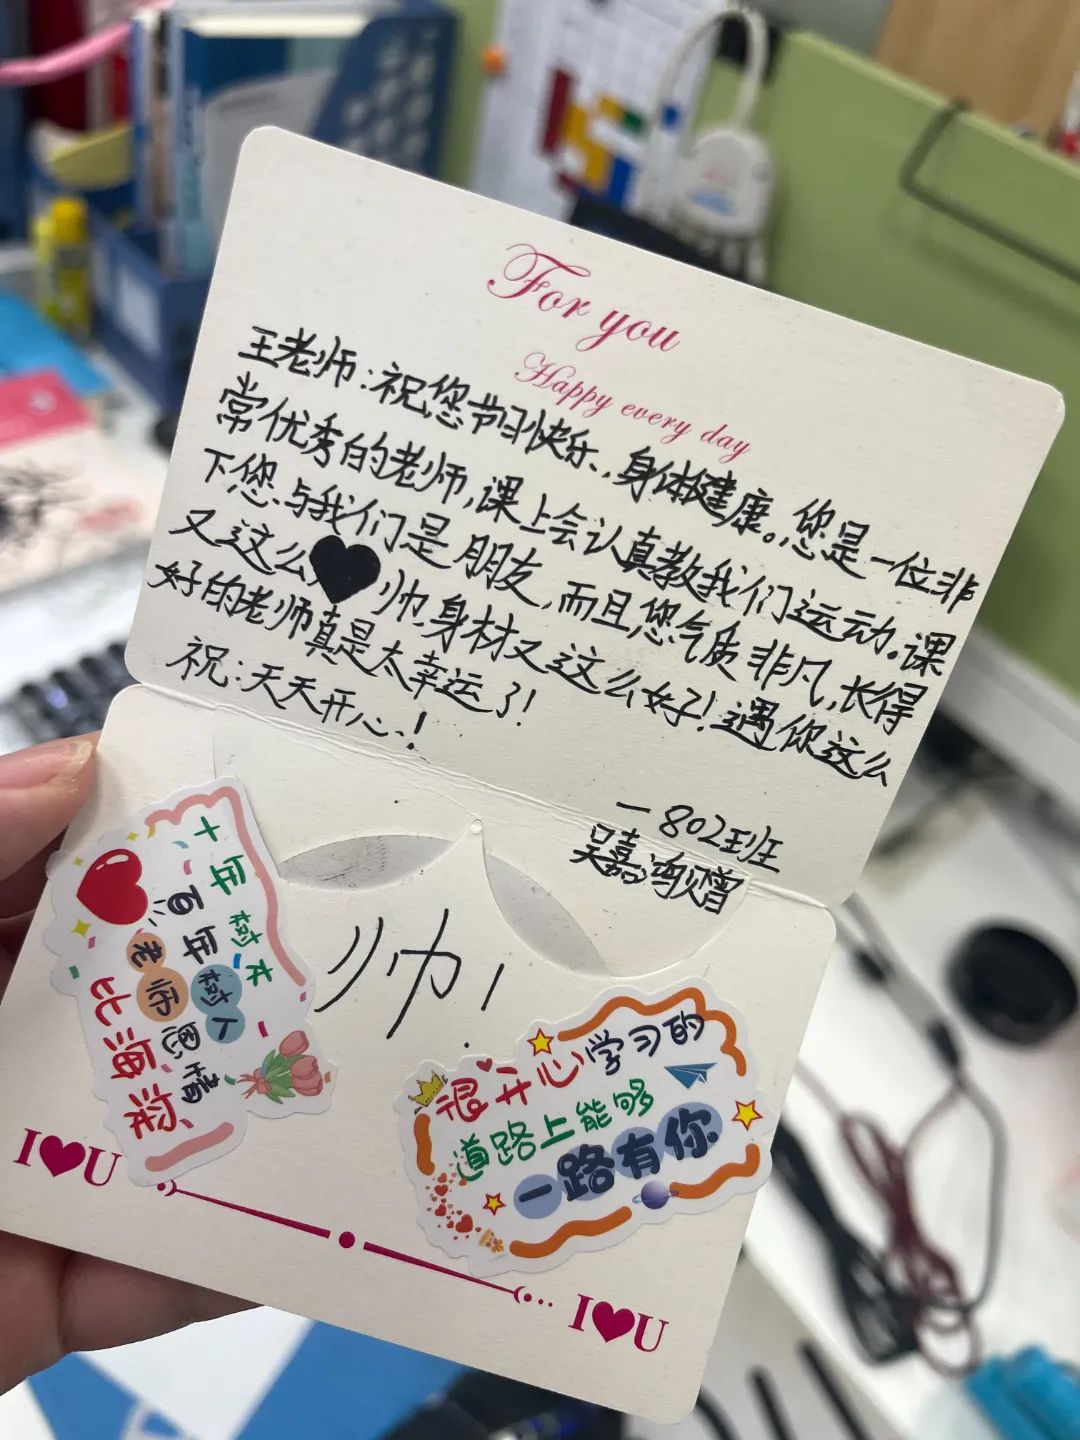 For you
Happy every day
王老师:祝您节日快乐,身体健康。您是一位非
常优秀的老师,课上会认真教我们运动。课
下您与我们是朋友,而且您气质非凡,长得
又这么帅,身材又这么好!遇你这么
好的老师真是太幸运了!
祝:天天开心!
一802班
吴嘉鸿
帅!
十年树木
百年树人
老师恩情
比海深
很开心学习的
道路上能够
一路有你
I♥U
I♥U